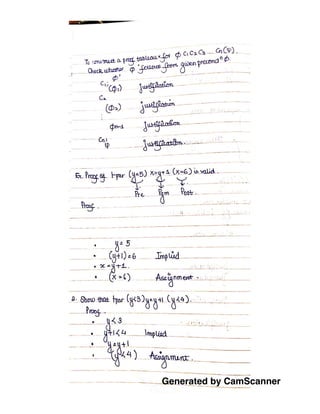 To construct a proof tableau for φ C1 C2 C3 ... Cn (ψ).
Check whether φ' follows from given precond" φ.
φ'
C1;
(φ1) justification
C2
(φ2) justification
φn-1 justification
Cn;
ψ justification.
Ex. Proof of ⊢par (y=5) x=y+1 (x=6) is valid.
Pre Pgm Post.
Proof.
• y = 5
• (y+1) = 6 Implied
• x = y+1.
• (x = 6) Assignment.
2. Show that ⊢par (y<3) y=y+1 (y<4).
Proof.
• y < 3
• y+1 < 4 Implied
• y = y+1
• (y < 4) Assignment.
Generated by CamScanner